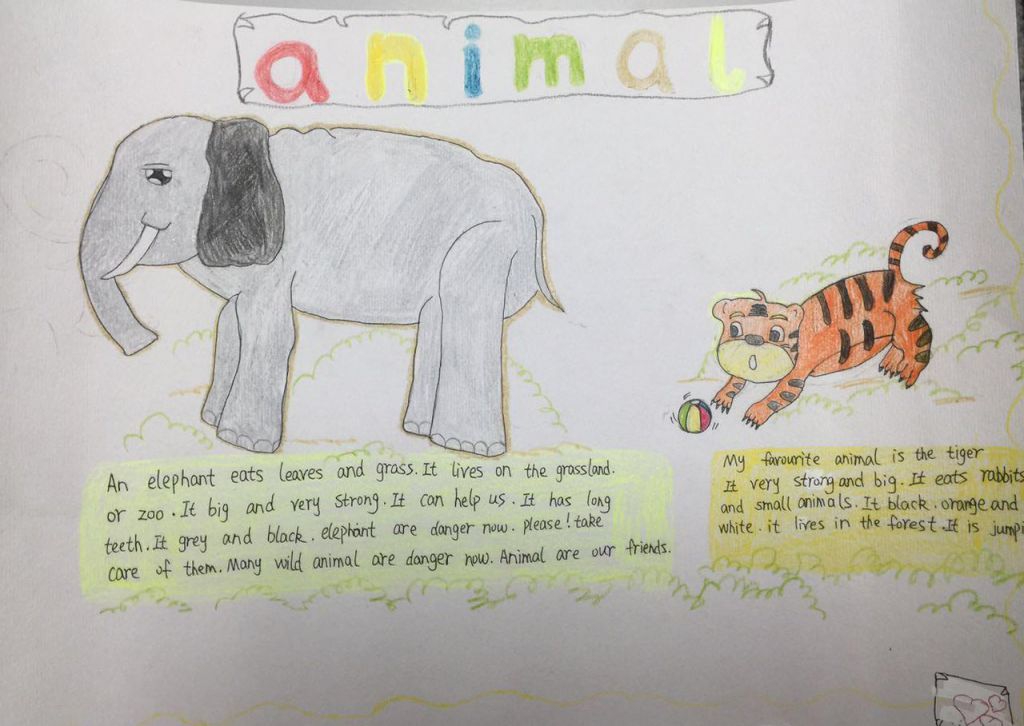 animal
An elephant eats leaves and grass. It lives on the grassland.
or zoo. It big and very strong. It can help us. It has long
teeth. It grey and black. elephant are danger now. please! take
care of them. Many wild animal are danger now. Animal are our friends.
My favourite animal is the tiger
It very strong and big. It eats rabbits
and small animals. It black. orange and
white. it lives in the forest. It is jump